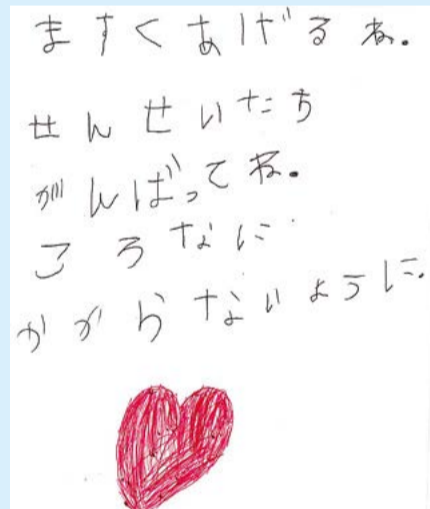 ますくあげるね.
せんせいたち
がんばってね.
ころなに
かからないように.